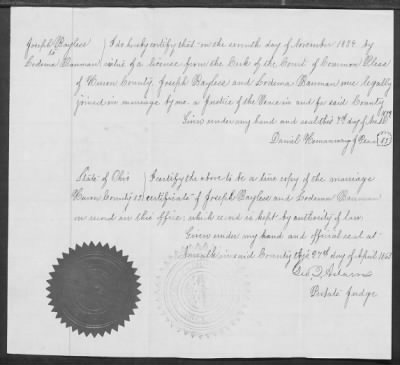 Joseph Bayless ) I do hereby certify that on the seventh day of November 1839 by
to
Lodema Bauman ) virtue of a license from the Clerk of the Court of Common Pleas
of Huron County, Joseph Bayless and Lodema Bauman were legally
joined in marriage by me a Justice of the Peace in and for said County
Given under my hand and seal this 7th day of Nov. 1839
Daniel Peace
State of Ohio ) I certify the above to be a true copy of the marriage
Huron County SS ) certificate of Joseph Bayless and Lodema Bauman
on record in this office; which record is kept by authority of law.
Given under my hand and official seal at
Norwalk in said County this 27th day of April
Probate Judge